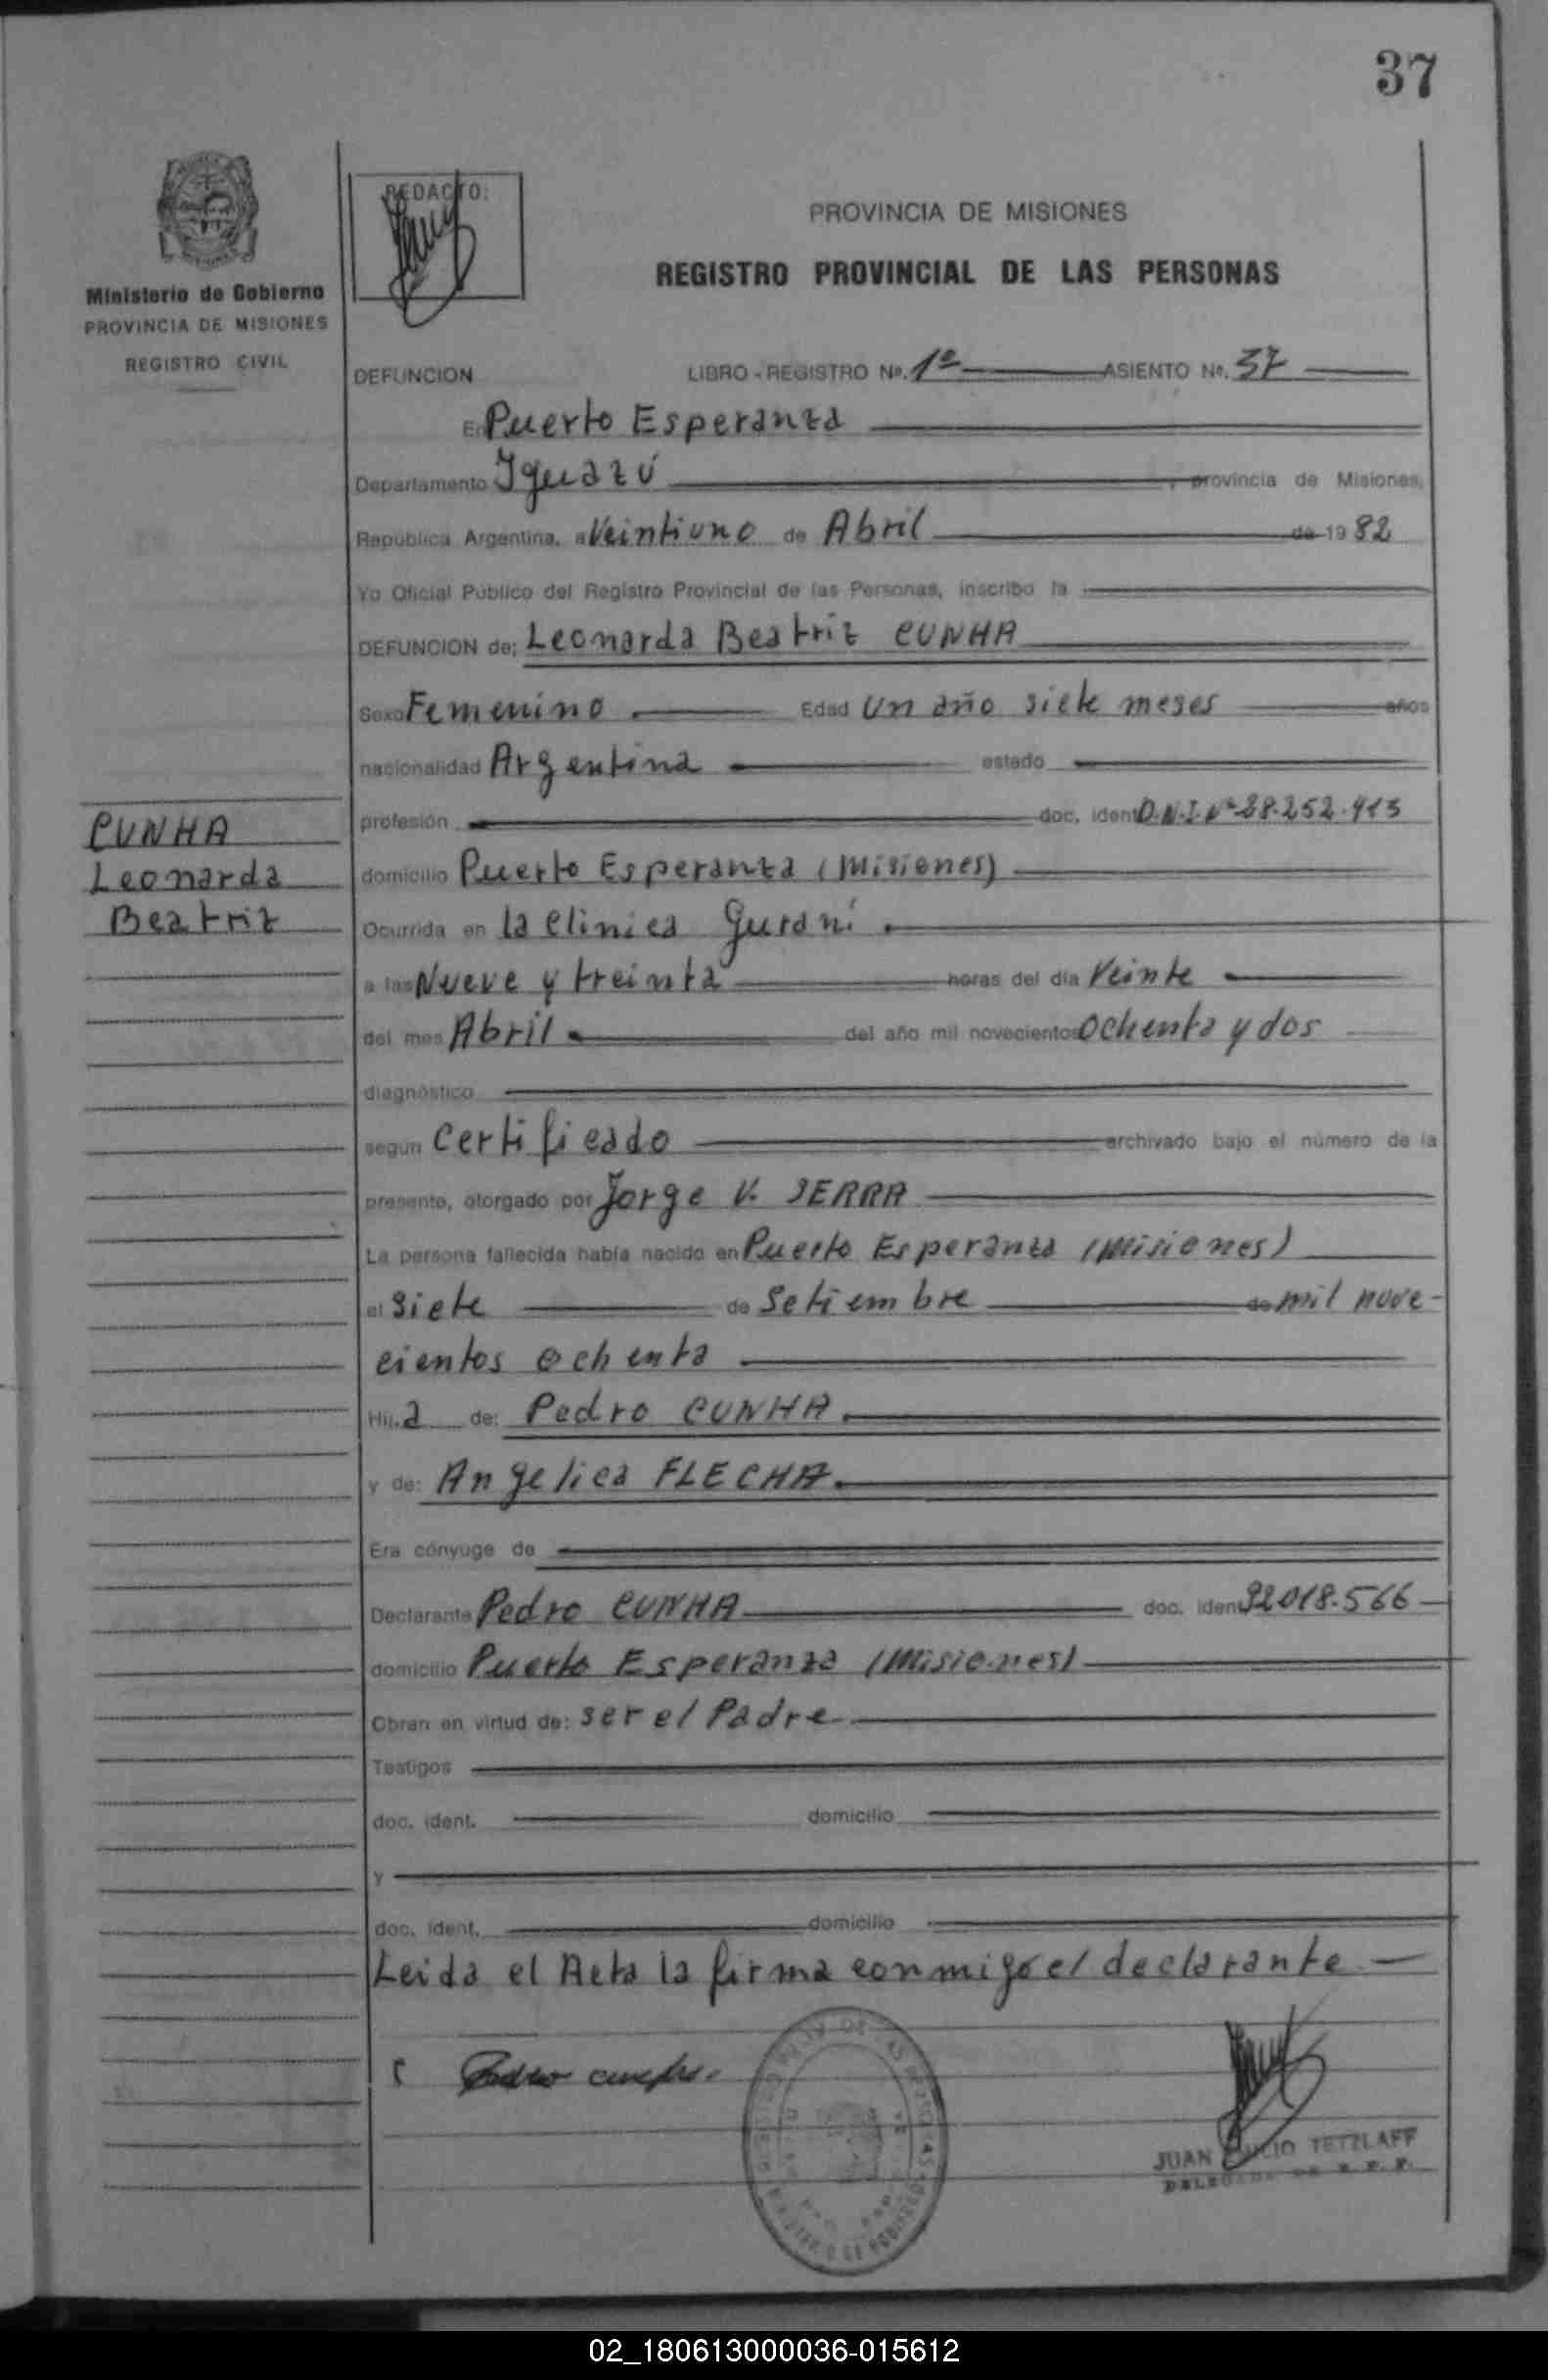 37
REDACTO:
PROVINCIA DE MISIONES
REGISTRO PROVINCIAL DE LAS PERSONAS
Ministerio de Gobierno
PROVINCIA DE MISIONES
REGISTRO CIVIL
DEFUNCION LIBRO - REGISTRO Nº. 1º ASIENTO Nº. 37
En Puerto Esperanza
Departamento Iguazú, provincia de Misiones,
República Argentina, a Veintiuno de Abril de 1982
Yo Oficial Público del Registro Provincial de las Personas, inscribo la
DEFUNCION de; Leonarda Beatriz CUNHA
Sexo Femenino Edad Un año siete meses años
nacionalidad Argentina estado
profesión doc. ident D.N.I. Nº 28.252.913
CUNHA
Leonarda
Beatriz
domicilio Puerto Esperanza (Misiones)
Ocurrida en la Clinica Guraní
a las Nueve y treinta horas del día Veinte
del mes Abril del año mil novecientos Ochenta y dos
diagnóstico
según Certificado archivado bajo el número de la
presente, otorgado por Jorge V. SERRA
La persona fallecida había nacido en Puerto Esperanza (Misiones)
el Siete de Setiembre de mil nove-
cientos ochenta
Hij.a de: Pedro CUNHA
y de: Angelica FLECHA
Era cónyuge de
Declarante Pedro CUNHA doc. iden 92018.566
domicilio Puerto Esperanza (Misiones)
Obran en virtud de: ser el Padre
Testigos
doc. ident. domicilio
y
doc. ident. domicilio
Leida el Acta la firma conmigo el declarante
JUAN EMILIO TETZLAFF
02_180613000036-015612